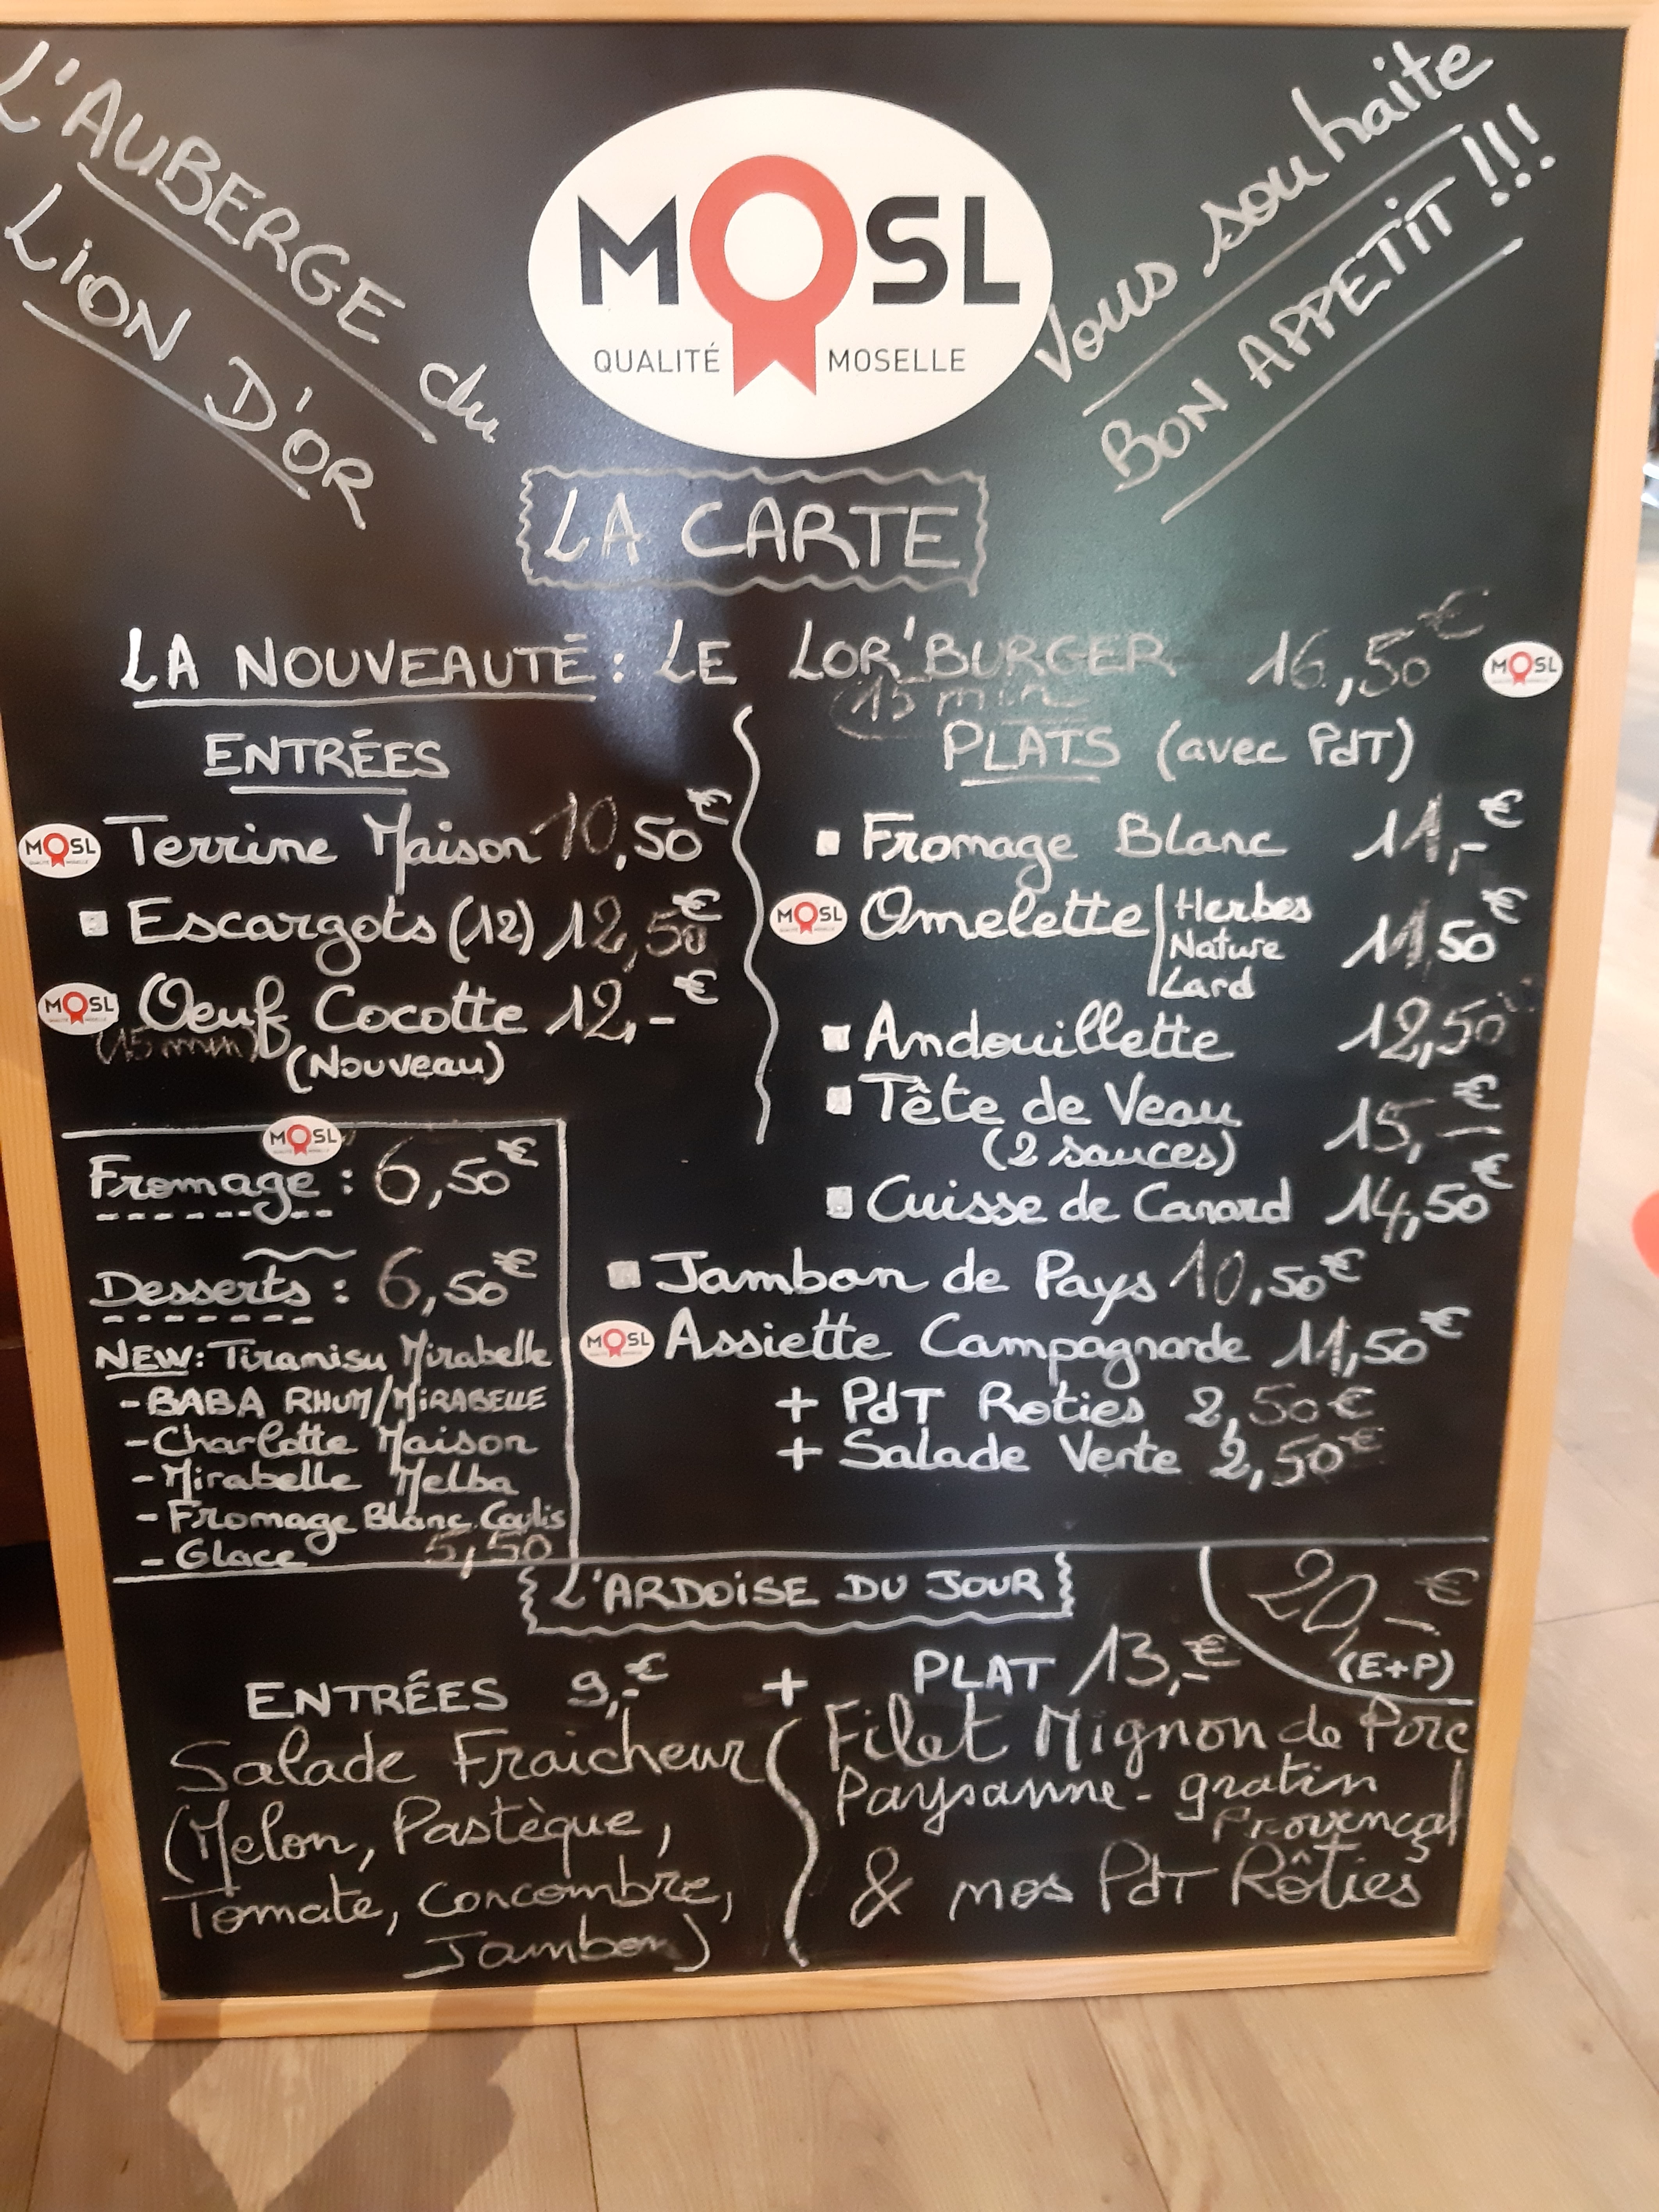 L'AUBERGE du
LION D'OR
MOSL
QUALITÉ MOSELLE
Vous souhaite
BON APPETIT !!!
LA CARTE
LA NOUVEAUTÉ : LE LOR'BURGER 16,50€
MOSL
15 min
ENTRÉES
MOSL Terrine Maison 10,50€
Escargots (12) 12,50€
MOSL Oeuf Cocotte 12,-€
(15 min)
(Nouveau)
PLATS (avec PdT)
Fromage Blanc 11,-€
MOSL Omelette Herbes 11,50€
Nature
Lard
Andouillette 12,50
Tête de Veau 15,-€
(2 sauces)
Cuisse de Canard 14,50€
Jambon de Pays 10,50€
MOSL Assiette Campagnarde 11,50€
+ PdT Roties 2,50€
+ Salade Verte 2,50€
MOSL
Fromage : 6,50€
Desserts : 6,50€
NEW: Tiramisu Mirabelle
- BABA RHUM/MIRABELLE
- Charlotte Maison
- Mirabelle Melba
- Fromage Blanc Coulis
- Glace 5,50
L'ARDOISE DU JOUR
20,-€
(E+P)
ENTRÉES 9,-€ + PLAT 13,-€
Salade Fraicheur
(Melon, Pastèque,
Tomate, Concombre,
Jambon)
Filet Mignon de Porc
Paysanne - gratin
Provençal
& mes PdT Rôties